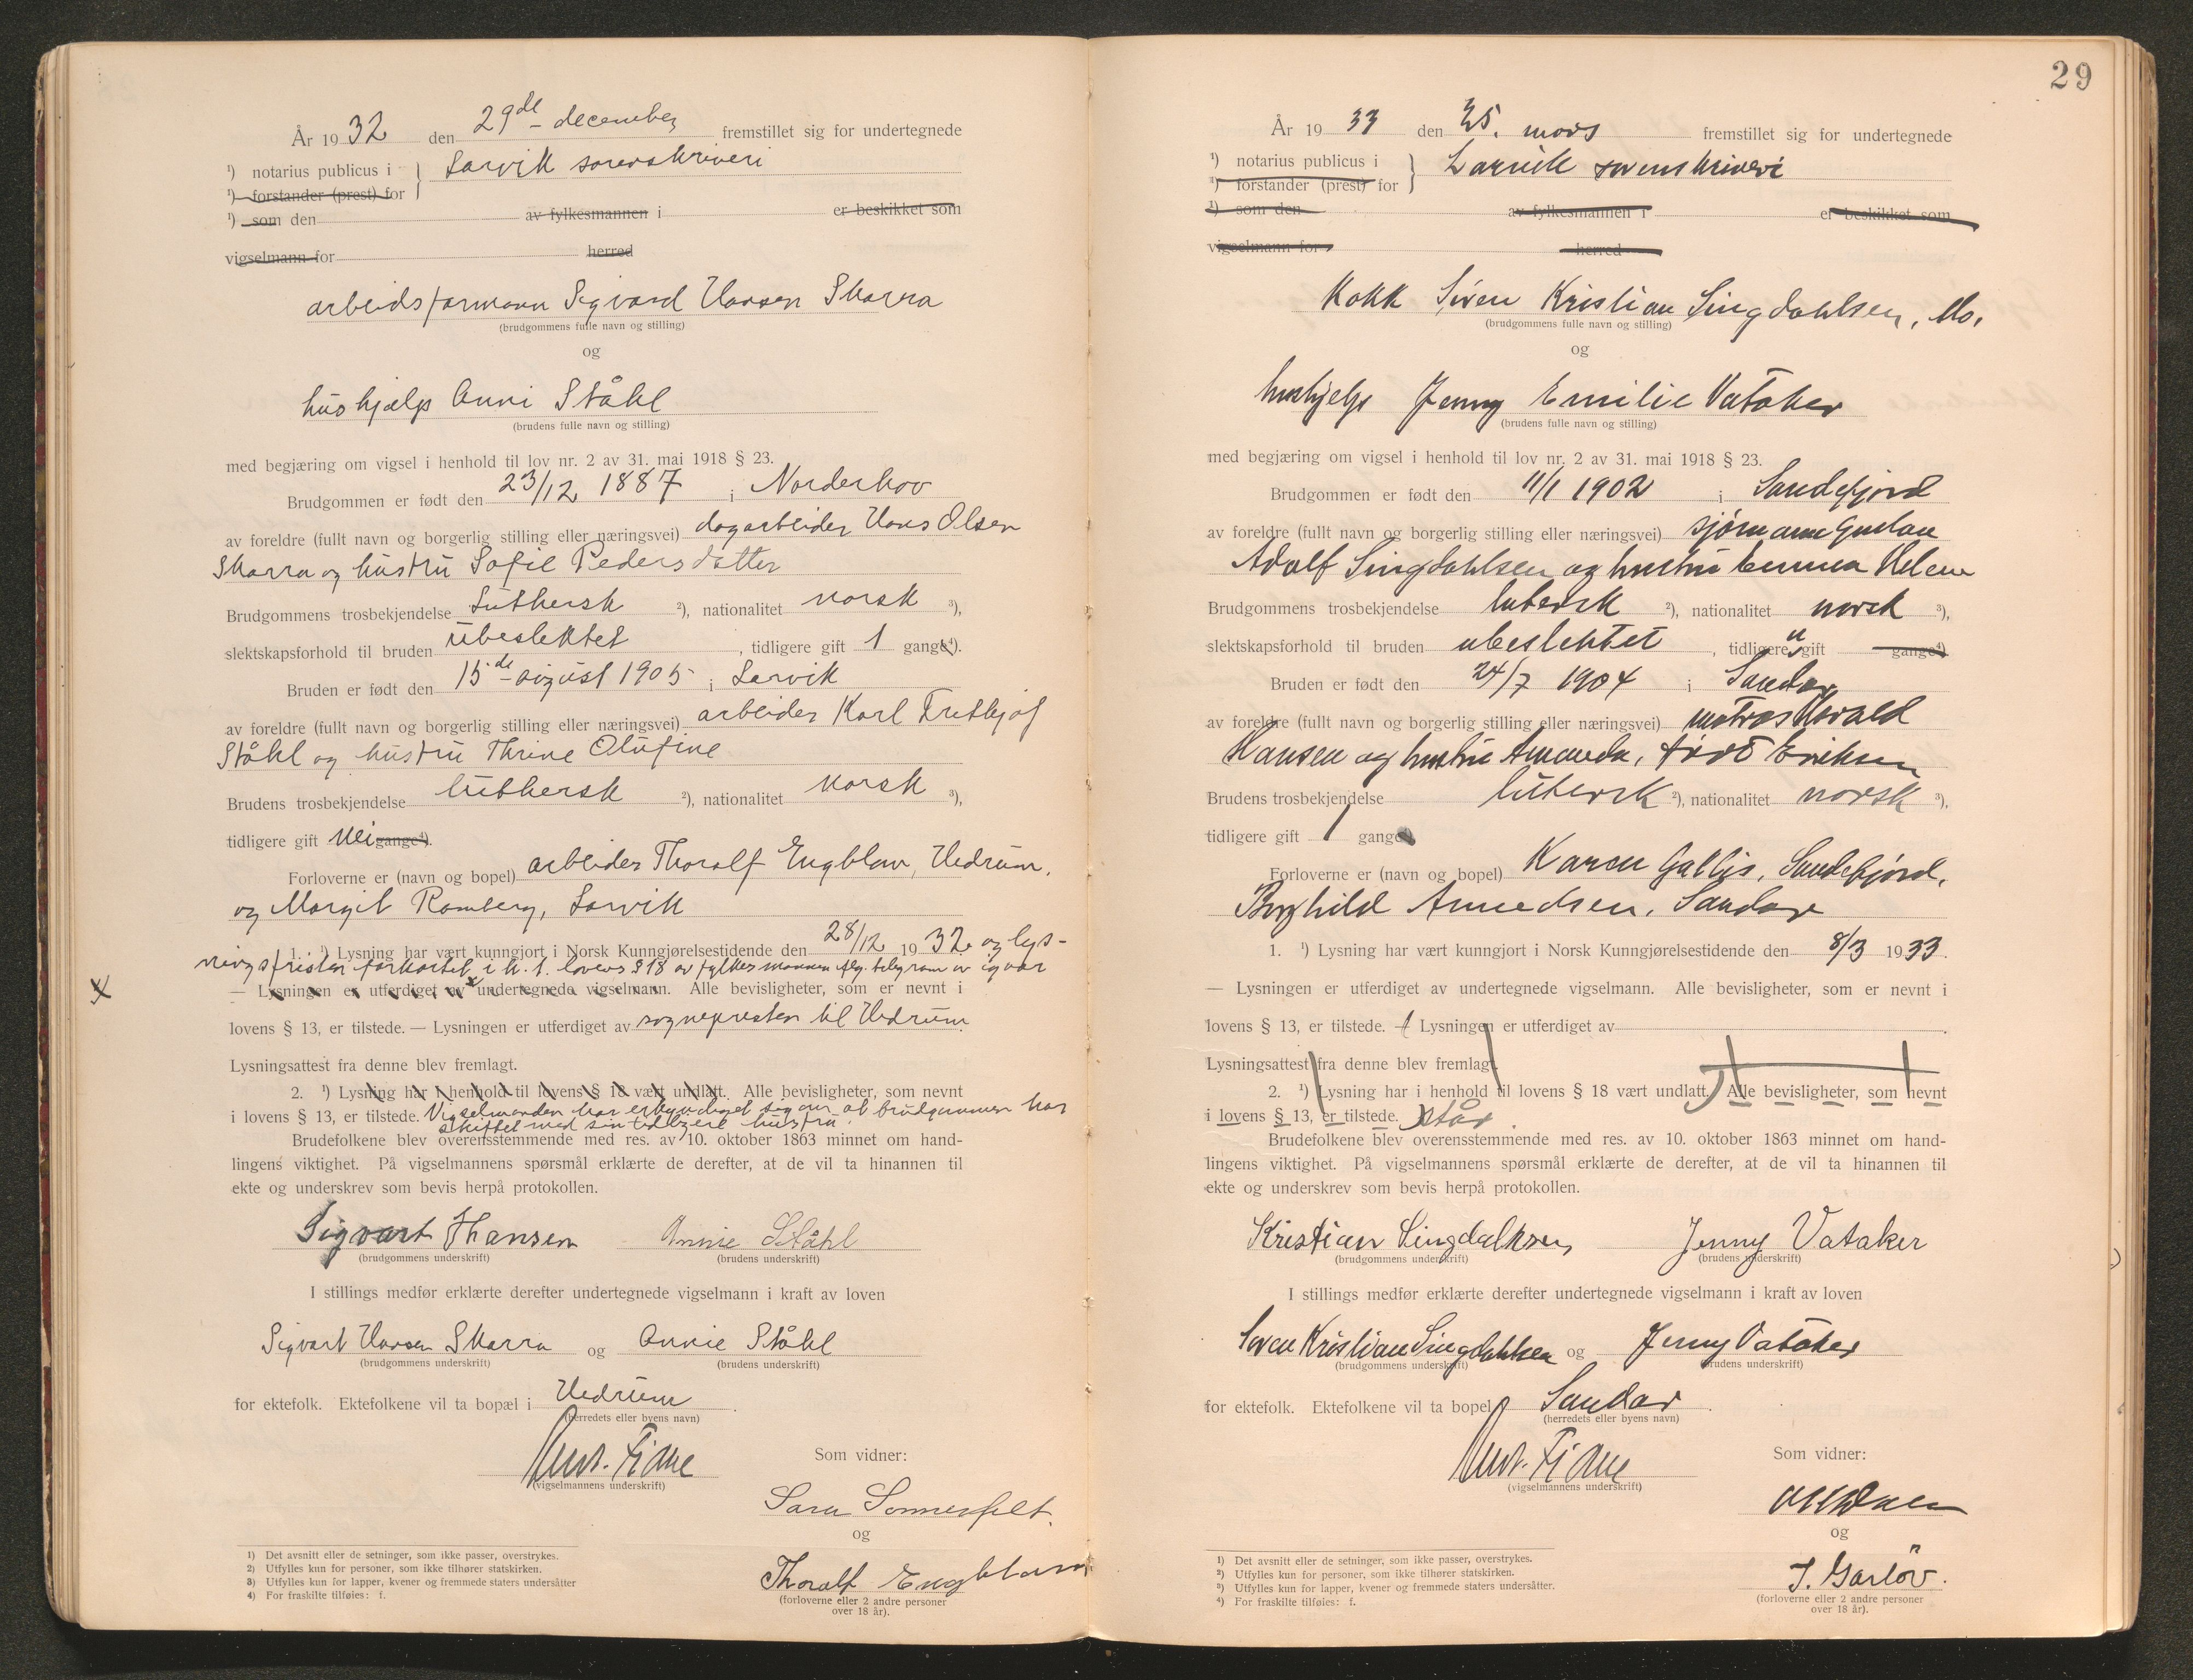 År 1932 den 29de december fremstillet sig for undertegnede
¹) notarius publicus i } Larvik sorenskriveri
¹) forstander (prest) for
¹) som den av fylkesmannen i er beskikket som
vigselmann for herred
arbeidsformann Sigvard Hansen Skarra
(brudgommens fulle navn og stilling)
og
hushjælp Anni Ståhl
(brudens fulle navn og stilling)
med begjæring om vigsel i henhold til lov nr. 2 av 31. mai 1918 § 23.
Brudgommen er født den 23/12 1887 i Norderhov
av foreldre (fullt navn og borgerlig stilling eller næringsvei) dagarbeider Hans Olsen
Skarra og hustru Sofie Pedersdatter
Brudgommens trosbekjendelse Luthersk ²), nationalitet norsk ³),
slektskapsforhold til bruden ubeslektet, tidligere gift 1 gange⁴).
Bruden er født den 15de august 1905 i Larvik
av foreldre (fullt navn og borgerlig stilling eller næringsvei) arbeider Karl Frithjof
Ståhl og hustru Thrine Olufine
Brudens trosbekjendelse luthersk ²), nationalitet norsk ³),
tidligere gift nei gange⁴).
Forloverne er (navn og bopel) arbeider Thoralf Engblom, Hedrum,
og Margit Ramberg, Larvik
1. ¹) Lysning har vært kunngjort i Norsk Kunngjørelsestidende den 28/12 1932 og lys-
ningsfristen forkortet i h. t. lovens § 18 av fylkesmannen iflg. telegram av igaar
x — Lysningen er utferdiget av x undertegnede vigselmann. Alle bevisligheter, som er nevnt i
lovens § 13, er tilstede. — Lysningen er utferdiget av sognepresten til Hedrum
Lysningsattest fra denne blev fremlagt.
2. ¹) Lysning har i henhold til lovens § 18 vært undlatt. Alle bevisligheter, som nevnt
i lovens § 13, er tilstede. Vigselmanden har erkyndiget sig om at brudgommen har
skiftet med sin tidligere hustru.
Brudefolkene blev overensstemmende med res. av 10. oktober 1863 minnet om hand-
lingens viktighet. På vigselmannens spørsmål erklærte de derefter, at de vil ta hinannen til
ekte og underskrev som bevis herpå protokollen.
Sigvart Hansen Annie Ståhl
(brudgommens underskrift) (brudens underskrift)
I stillings medfør erklærte derefter undertegnede vigselmann i kraft av loven
Sigvart Hansen Skarra og Annie Ståhl
(brudgommens underskrift) (brudens underskrift)
for ektefolk. Ektefolkene vil ta bopæl i Hedrum.
(herredets eller byens navn)
Fiane
(vigselmannens underskrift)
Som vidner:
Sara Sonnesfelt.
og
Thoralf Engblom
(forloverne eller 2 andre personer
over 18 år).
1) Det avsnitt eller de setninger, som ikke passer, overstrykes.
2) Utfylles kun for personer, som ikke tilhører statskirken.
3) Utfylles kun for lapper, kvener og fremmede staters undersåtter
4) For fraskilte tilføies: f.
29
År 1933 den 25. mars fremstillet sig for undertegnede
¹) notarius publicus i } Larvik sorenskriveri
¹) forstander (prest) for
¹) som den av fylkesmannen i er beskikket som
vigselmann for herred
Kokk Søren Kristian Lingdahlsen, Mo.
(brudgommens fulle navn og stilling)
og
hushjelp Jenny Emilie Vataker
(brudens fulle navn og stilling)
med begjæring om vigsel i henhold til lov nr. 2 av 31. mai 1918 § 23.
Brudgommen er født den 11/1 1902 i Sandefjord
av foreldre (fullt navn og borgerlig stilling eller næringsvei) sjømann Gustav
Adolf Lingdahlsen og hustru Emma Helene
Brudgommens trosbekjendelse lutersk ²), nationalitet norsk ³),
slektskapsforhold til bruden ubeslektet, tidligere u gift gange⁴)
Bruden er født den 24/7 1904 i Sandar
av foreldre (fullt navn og borgerlig stilling eller næringsvei) matros Harald
Hansen og hustru Amanda, født Eriksen
Brudens trosbekjendelse lutersk ²), nationalitet norsk ³),
tidligere gift 1 gange
Forloverne er (navn og bopel) Karen Gallis, Sandefjord,
Borghild Amundsen, Sandar
1. ¹) Lysning har vært kunngjort i Norsk Kunngjørelsestidende den 8/3 1933.
— Lysningen er utferdiget av undertegnede vigselmann. Alle bevisligheter, som er nevnt i
lovens § 13, er tilstede. — Lysningen er utferdiget av
Lysningsattest fra denne blev fremlagt.
2. ¹) Lysning har i henhold til lovens § 18 vært undlatt. Alle bevisligheter, som nevnt
i lovens § 13, er tilstede. står.
Brudefolkene blev overensstemmende med res. av 10. oktober 1863 minnet om hand-
lingens viktighet. På vigselmannens spørsmål erklærte de derefter, at de vil ta hinannen til
ekte og underskrev som bevis herpå protokollen.
Kristian Lingdalhsen Jenny Vataker
(brudgommens underskrift) (brudens underskrift)
I stillings medfør erklærte derefter undertegnede vigselmann i kraft av loven
Søren Kristian Lingdahlsen og Jenny Vataker
(brudgommens underskrift) (brudens underskrift)
for ektefolk. Ektefolkene vil ta bopel i Sandar.
(herredets eller byens navn)
Fiane
(vigselmannens underskrift)
Som vidner:
og
J. Garløv.
(forloverne eller 2 andre personer
over 18 år).
1) Det avsnitt eller de setninger, som ikke passer, overstrykes.
2) Utfylles kun for personer, som ikke tilhører statskirken.
3) Utfylles kun for lapper, kvener og fremmede staters undersåtter.
4) For fraskilte tilføies: f.